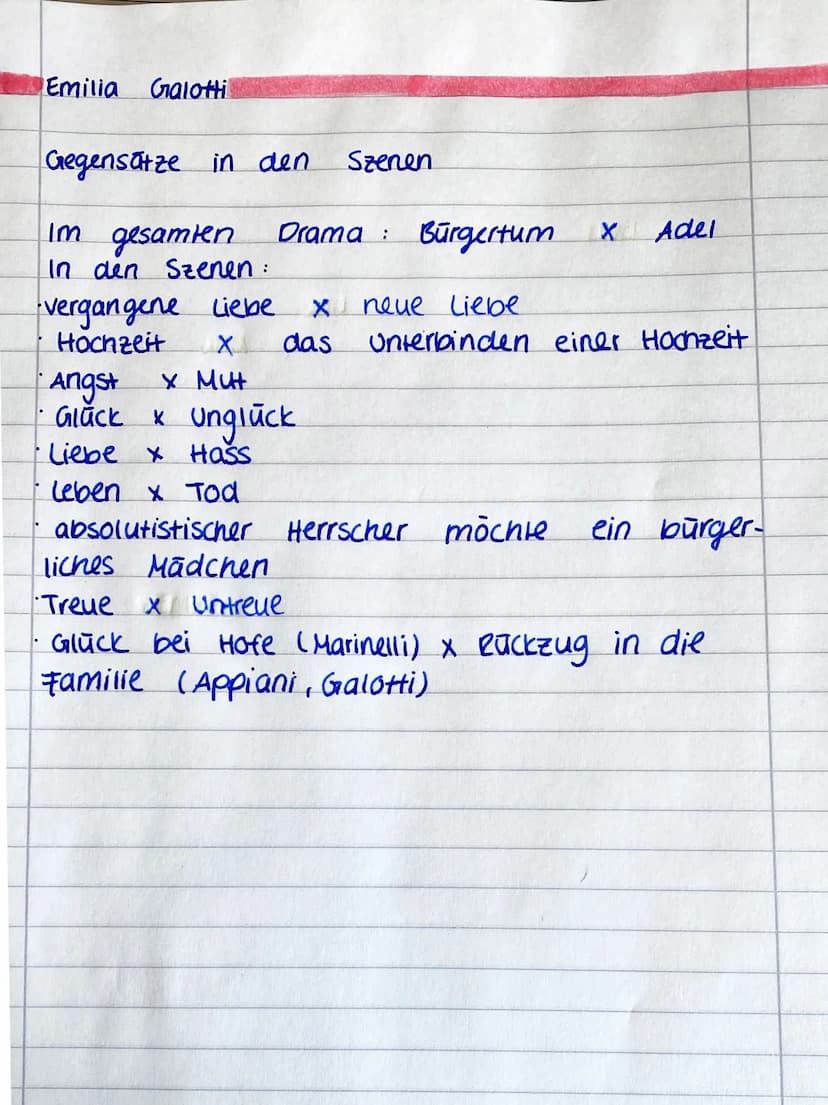 Emilia Galotti
Gegensätze in den Szenen
Im gesamten Drama : Bürgertum x Adel
In den Szenen :
·vergangene Liebe x neue Liebe
· Hochzeit x das Unterbinden einer Hochzeit
· Angst x Mut
· Glück x Unglück
· Liebe x Hass
· Leben x Tod
· absolutistischer Herrscher möchte ein bürger-
liches Mädchen
· Treue x Untreue
· Glück bei Hofe (Marinelli) x Rückzug in die
Familie (Appiani, Galotti)